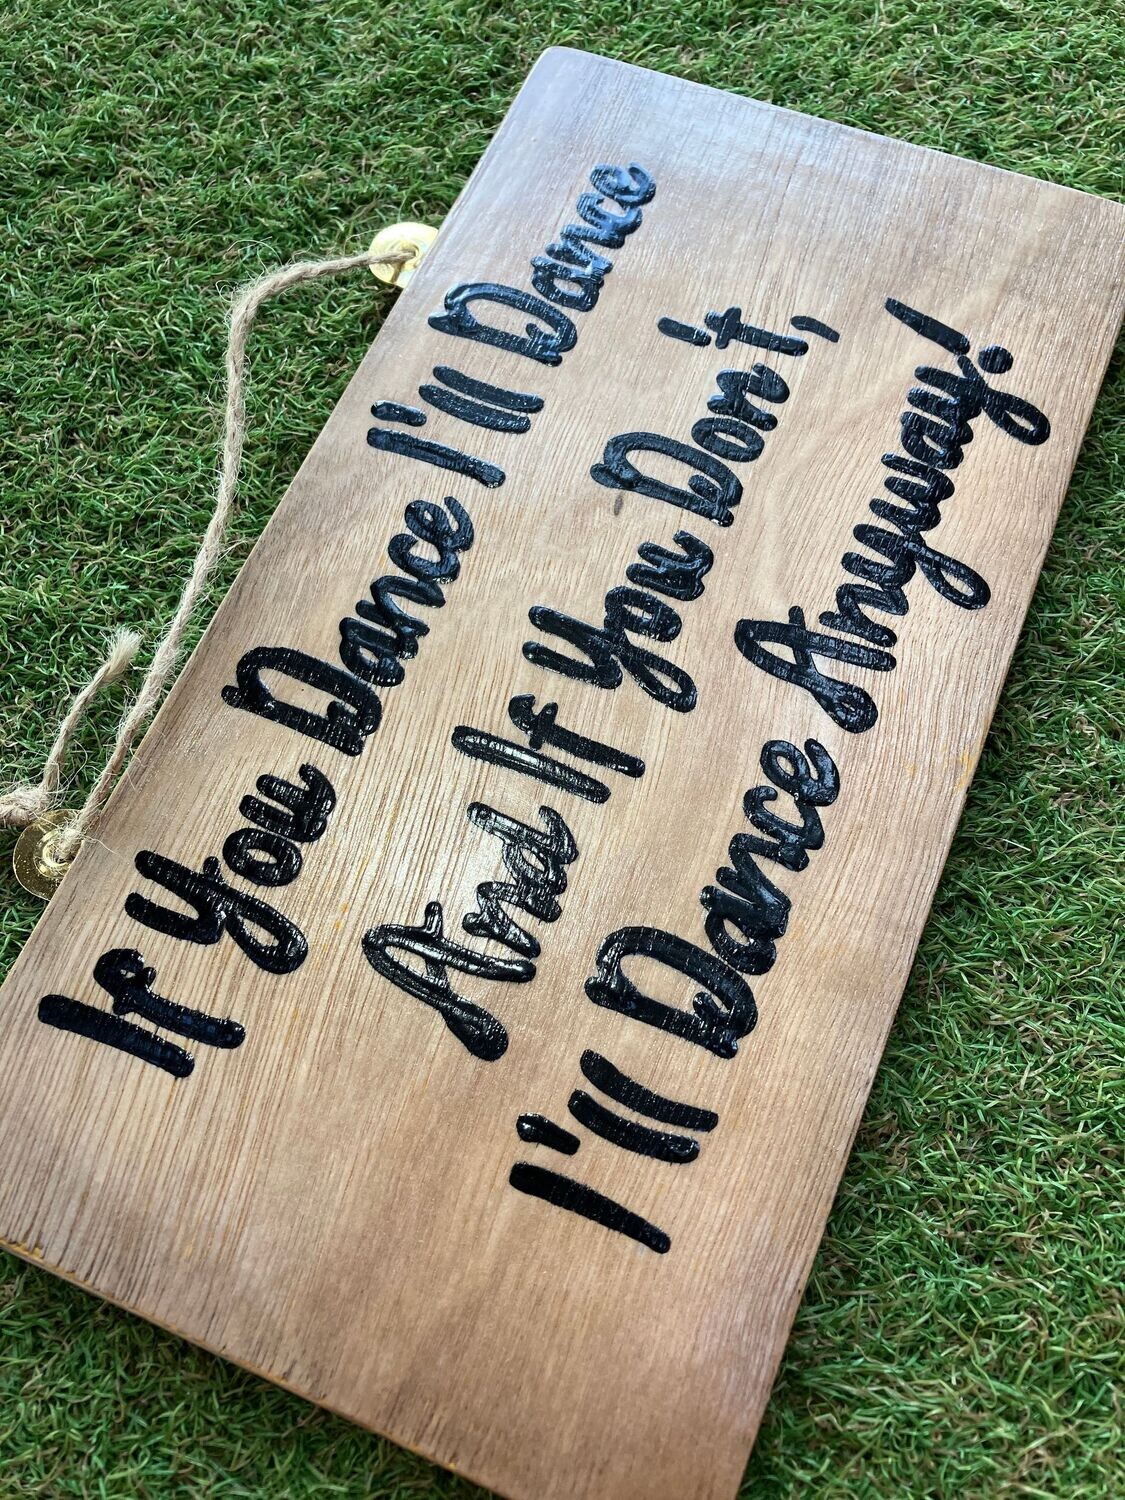 If You Dance I'll Dance
And If You Don't,
I'll Dance Anyway!